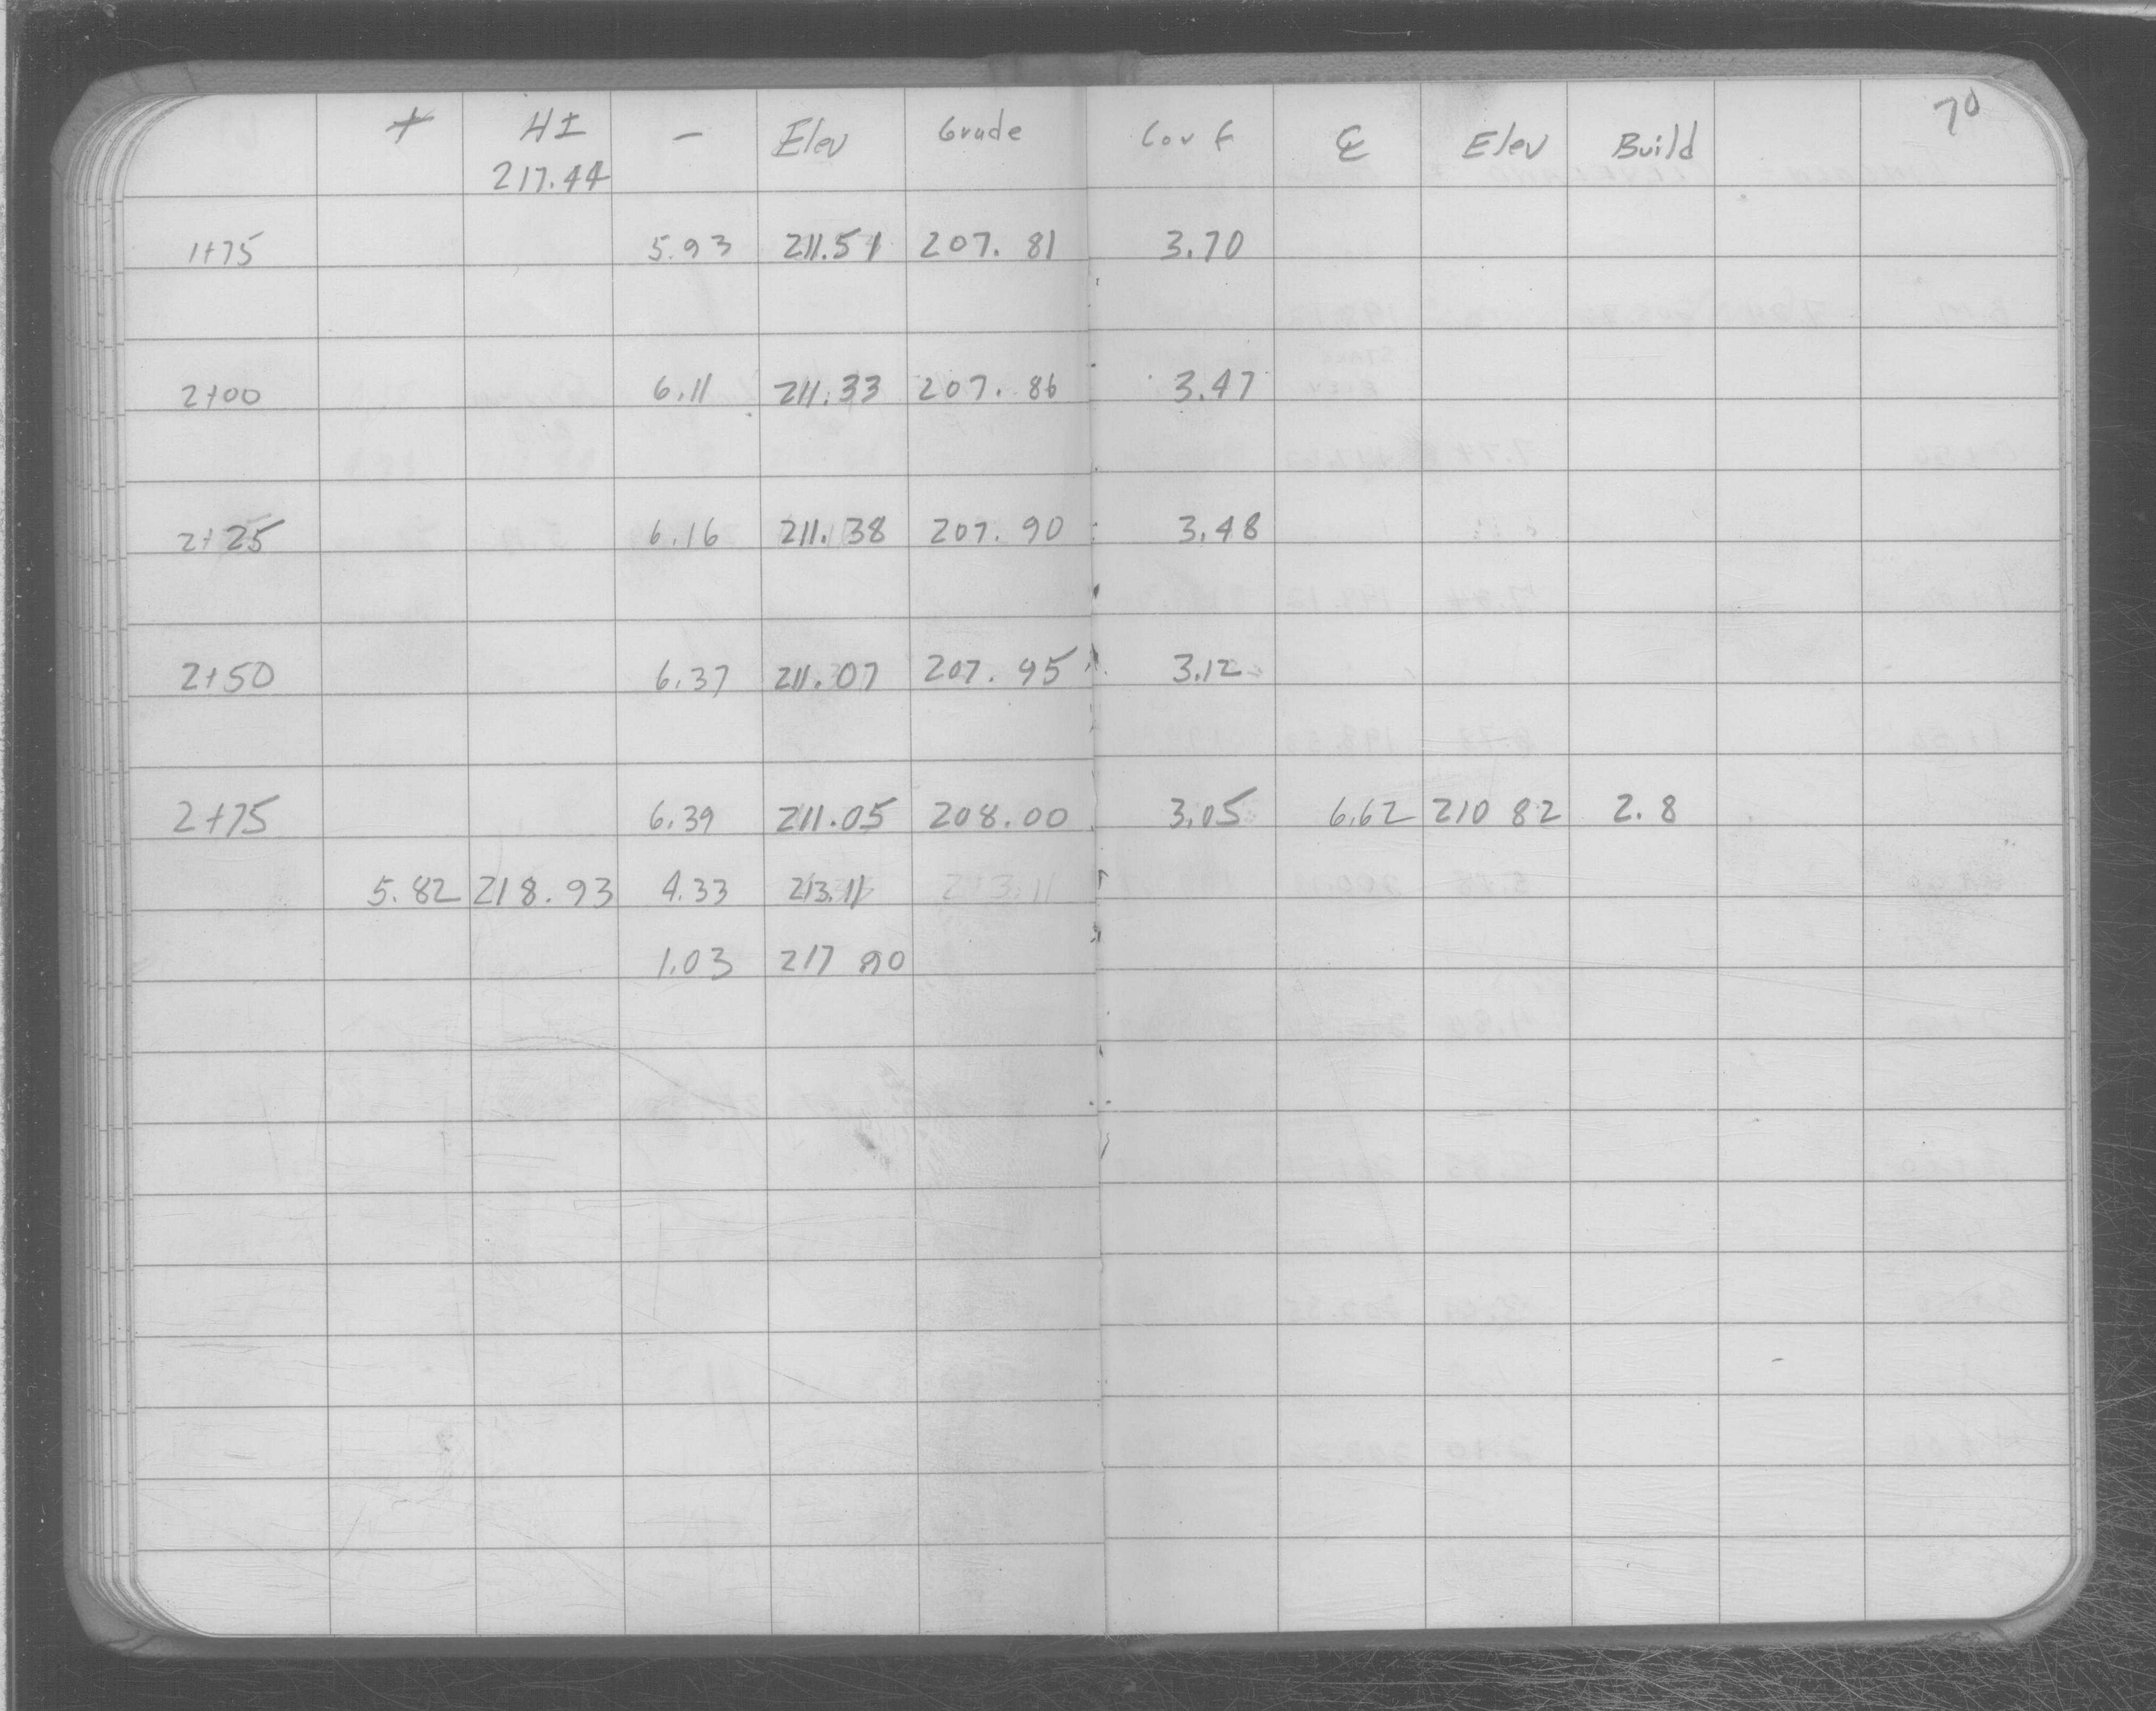 70
+ HI - Elev Grade Cor f ℄ Elev Build
217.44
1+75 5.93 211.51 207.81 3.70
2+00 6.11 211.33 207.86 3.47
2+25 6.16 211.38 207.90 3.48
2+50 6.37 211.07 207.95 3.12
2+75 6.39 211.05 208.00 3.05 6.62 210 82 2.8
5.82 218.93 4.33 213.11 213.11
1.03 217 90